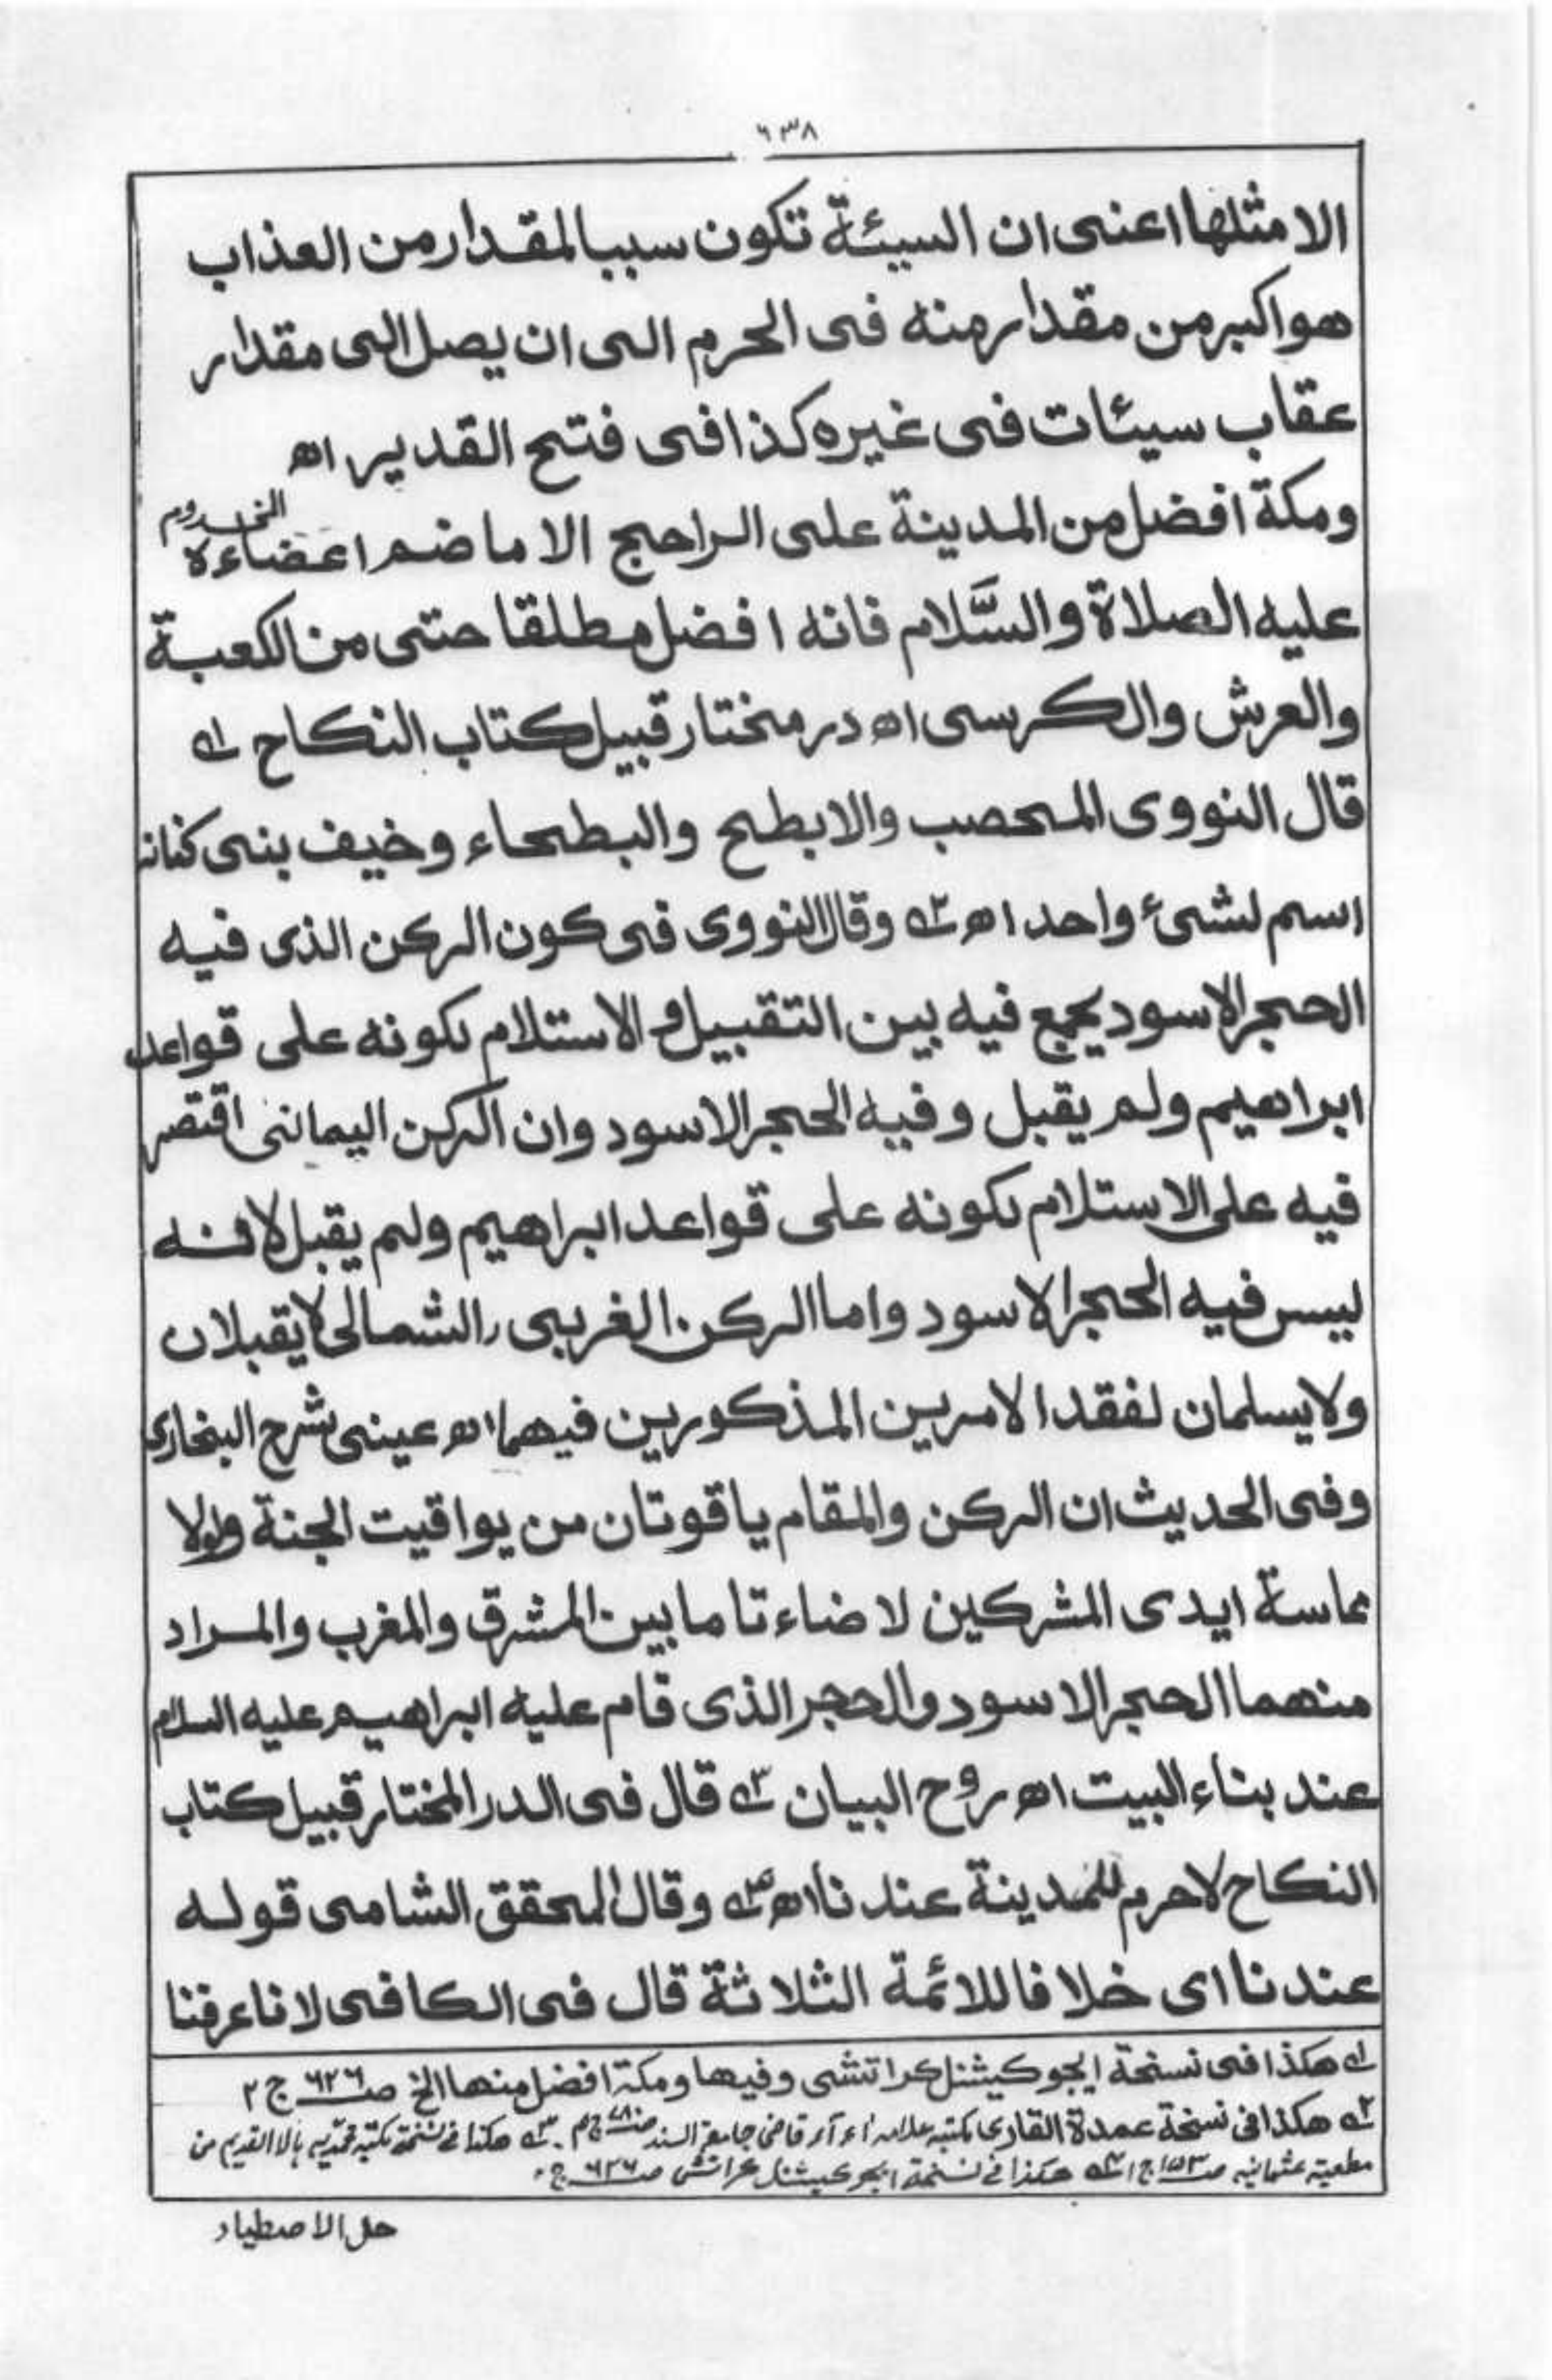 ٦٣٨
الا مثلها اعنى ان السيئة تكون سببا لمقدار من العذاب
هو اكبر من مقدار منه فى الحرم الى ان يصل الى مقدار
عقاب سيئات فى غيره كذا فى فتح القدير اه
ومكة افضل من المدينة على الراجح الا ما ضم اعضاءه
عليه الصلاة والسَّلام فانه افضل مطلقا حتى من الكعبة
والعرش والكرسى اه در مختار قبيل كتاب النكاح ١ه
قال النووى المحصب والابطح والبطحاء وخيف بنى كنانة
اسم لشئ واحد اه ٢ه وقال النووى فى كون الركن الذى فيه
الحجر الاسود يجمع فيه بين التقبيل والاستلام لكونه على قواعد
ابراهيم ولم يقبل وفيه الحجر الاسود وان الركن اليمانى اقتصر
فيه على الاستلام لكونه على قواعد ابراهيم ولم يقبل لانه
ليس فيه الحجر الاسود واما الركن الغربى والشمالى لا يقبلان
ولا يسلمان لفقد الامرين المذكورين فيهما اه عينى شرح البخارى
وفى الحديث ان الركن والمقام ياقوتان من يواقيت الجنة ولولا
مماسة ايدى المشركين لاضاءتا ما بين المشرق والمغرب والمراد
منهما الحجر الاسود والحجر الذى قام عليه ابراهيم عليه السلام
عند بناء البيت اه روح البيان ٣ه قال فى الدر المختار قبيل كتاب
النكاح لا حرم للمدينة عندنا اه ٤ه وقال المحقق الشامى قوله
عندنا اى خلافا للائمة الثلاثة قال فى الكافى لانا عرفنا
١ه هكذا فى نسخة ايجوكيشنل كراتشى وفيها ومكة افضل منها الخ صـ ٦٢٦ ج ٢
٢ه هكذا فى نسخة عمدة القارى مكتبه علامه اء آء قاضى جامعة السند ٣ه هكذا فى نسخة مكتبه محمديه بالا القديم من
مطعبة عثمانيه صـ ١٥٣ ج ١ ٤ه هكذا فى نسخة ايجوكيشنل كراتشى صـ ٦٢٦ ج ٢
حل الاصطياد